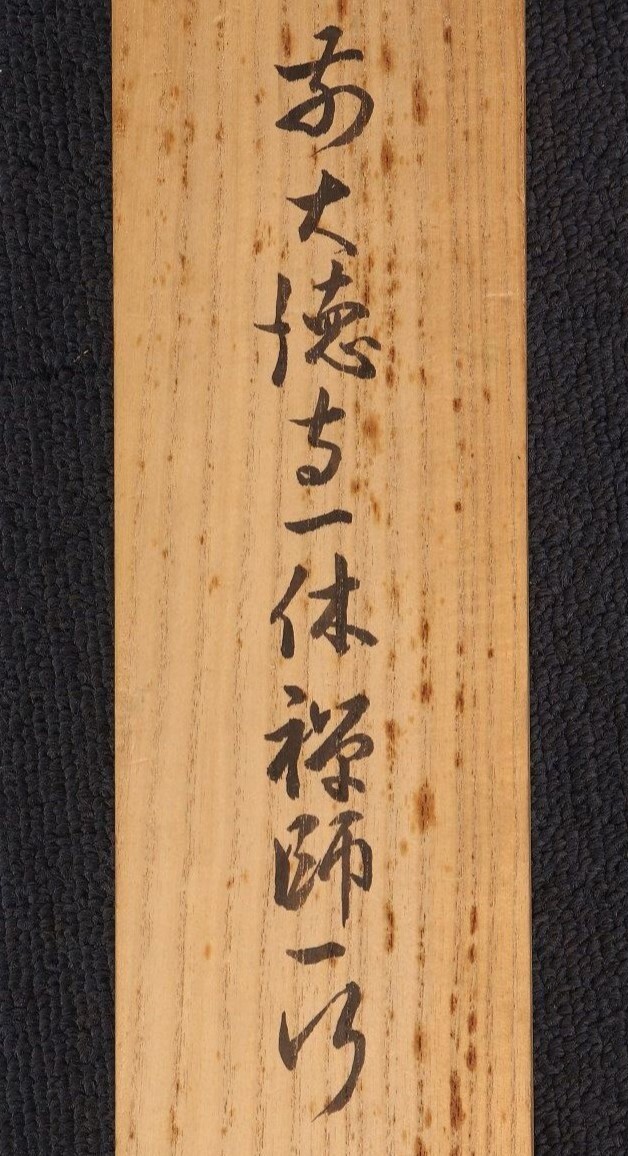 前大徳寺一休禅師一行